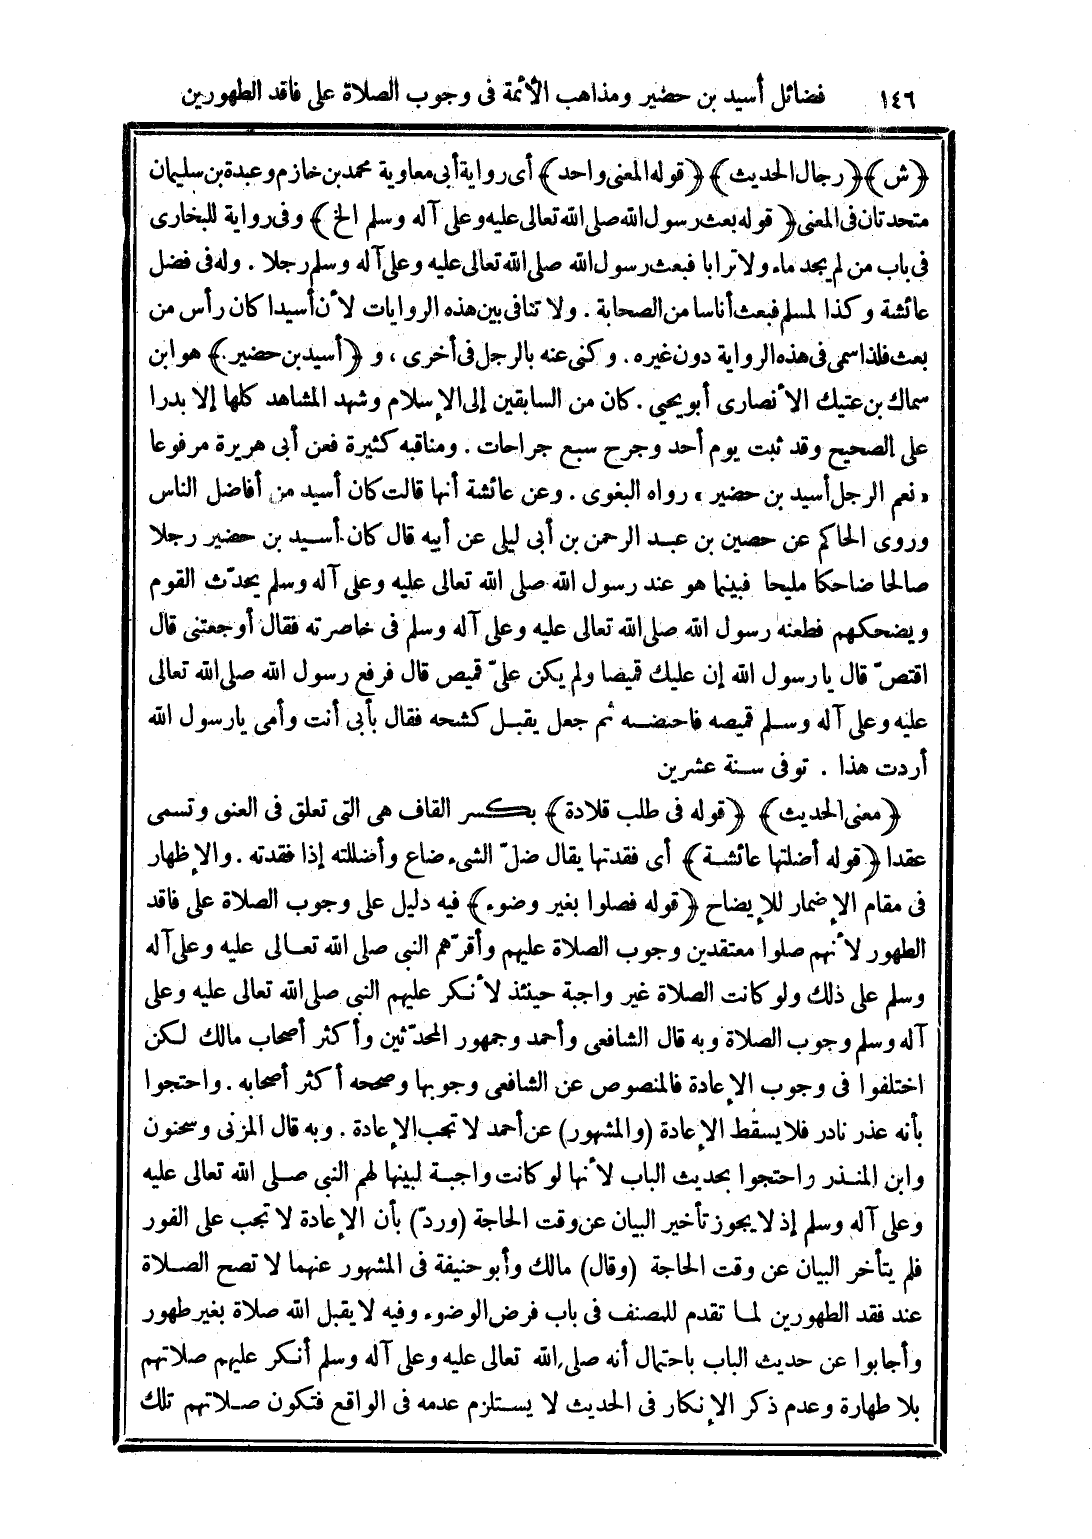 ١٤٦ فضائل أسيد بن حضير ومذاهب الأئمة فى وجوب الصلاة على فاقد الطهورين
﴿ش﴾ ﴿رجال الحديث﴾ ﴿قوله المعنى واحد﴾ أى رواية أبى معاوية محمد بن خازم وعبدة بن سليمان
متحدتان فى المعنى ﴿قوله بعث رسول الله صلى الله تعالى عليه وعلى آله وسلم الخ﴾ وفى رواية للبخارى
فى باب من لم يجد ماء ولا ترابا فبعث رسول الله صلى الله تعالى عليه وعلى آله وسلم رجلا . وله فى فضل
عائشة وكذا لمسلم فبعث أناسا من الصحابة . ولا تنافى بين هذه الروايات لأن أسيدا كان رأس من
بعث فلذا سمى فى هذه الرواية دون غيره . وكنى عنه بالرجل فى أخرى ، و ﴿أسيد بن حضير﴾ هو ابن
سماك بن عتيك الأنصارى أبو يحيى . كان من السابقين إلى الإسلام وشهد المشاهد كلها إلا بدرا
على الصحيح وقد ثبت يوم أحد وجرح سبع جراحات . ومناقبه كثيرة فعن أبى هريرة مرفوعا
« نعم الرجل أسيد بن حضير » رواه البغوى . وعن عائشة أنها قالت كان أسيد من أفاضل الناس
وروى الحاكم عن حصين بن عبد الرحمن بن أبى ليلى عن أبيه قال كان أسيد بن حضير رجلا
صالحا ضاحكا مليحا فبينما هو عند رسول الله صلى الله تعالى عليه وعلى آله وسلم يحدّث القوم
ويضحكهم فطعنه رسول الله صلى الله تعالى عليه وعلى آله وسلم فى خاصرته فقال أوجعتنى قال
اقتصّ قال يا رسول الله إن عليك قميصا ولم يكن علىّ قميص قال فرفع رسول الله صلى الله تعالى
عليه وعلى آله وسلم قميصه فاحتضنه ثم جعل يقبل كشحه فقال بأبى أنت وأمى يارسول الله
أردت هذا . توفى سنة عشرين
﴿معنى الحديث﴾ ﴿قوله فى طلب قلادة﴾ بكسر القاف هى التى تعلق فى العنق وتسمى
عقدا ﴿قوله أضلتها عائشة﴾ أى فقدتها يقال ضلّ الشىء ضاع وأضللته إذا فقدته . والإظهار
فى مقام الإضمار للإيضاح ﴿قوله فصلوا بغير وضوء﴾ فيه دليل على وجوب الصلاة على فاقد
الطهور لأنهم صلوا معتقدين وجوب الصلاة عليهم وأقرّهم النبى صلى الله تعالى عليه وعلى آله
وسلم على ذلك ولو كانت الصلاة غير واجبة حينئذ لأنكر عليهم النبى صلى الله تعالى عليه وعلى
آله وسلم وجوب الصلاة وبه قال الشافعى وأحمد وجمهور المحدّثين وأكثر أصحاب مالك لكن
اختلفوا فى وجوب الإعادة فالمنصوص عن الشافعى وجوبها وصححه أكثر أصحابه . واحتجوا
بأنه عذر نادر فلا يسقط الإعادة (والمشهور) عن أحمد لا تجب الإعادة . وبه قال المزنى وسحنون
وابن المنذر واحتجوا بحديث الباب لأنها لو كانت واجبة لبينها لهم النبى صلى الله تعالى عليه
وعلى آله وسلم إذ لا يجوز تأخير البيان عن وقت الحاجة (وردّ) بأن الإعادة لا تجب على الفور
فلم يتأخر البيان عن وقت الحاجة (وقال) مالك وأبو حنيفة فى المشهور عنهما لا تصح الصلاة
عند فقد الطهورين لما تقدم للمصنف فى باب فرض الوضوء وفيه لا يقبل الله صلاة بغير طهور
وأجابوا عن حديث الباب باحتمال أنه صلى الله تعالى عليه وعلى آله وسلم أنكر عليهم صلاتهم
بلا طهارة وعدم ذكر الإنكار فى الحديث لا يستلزم عدمه فى الواقع فتكون صلاتهم تلك